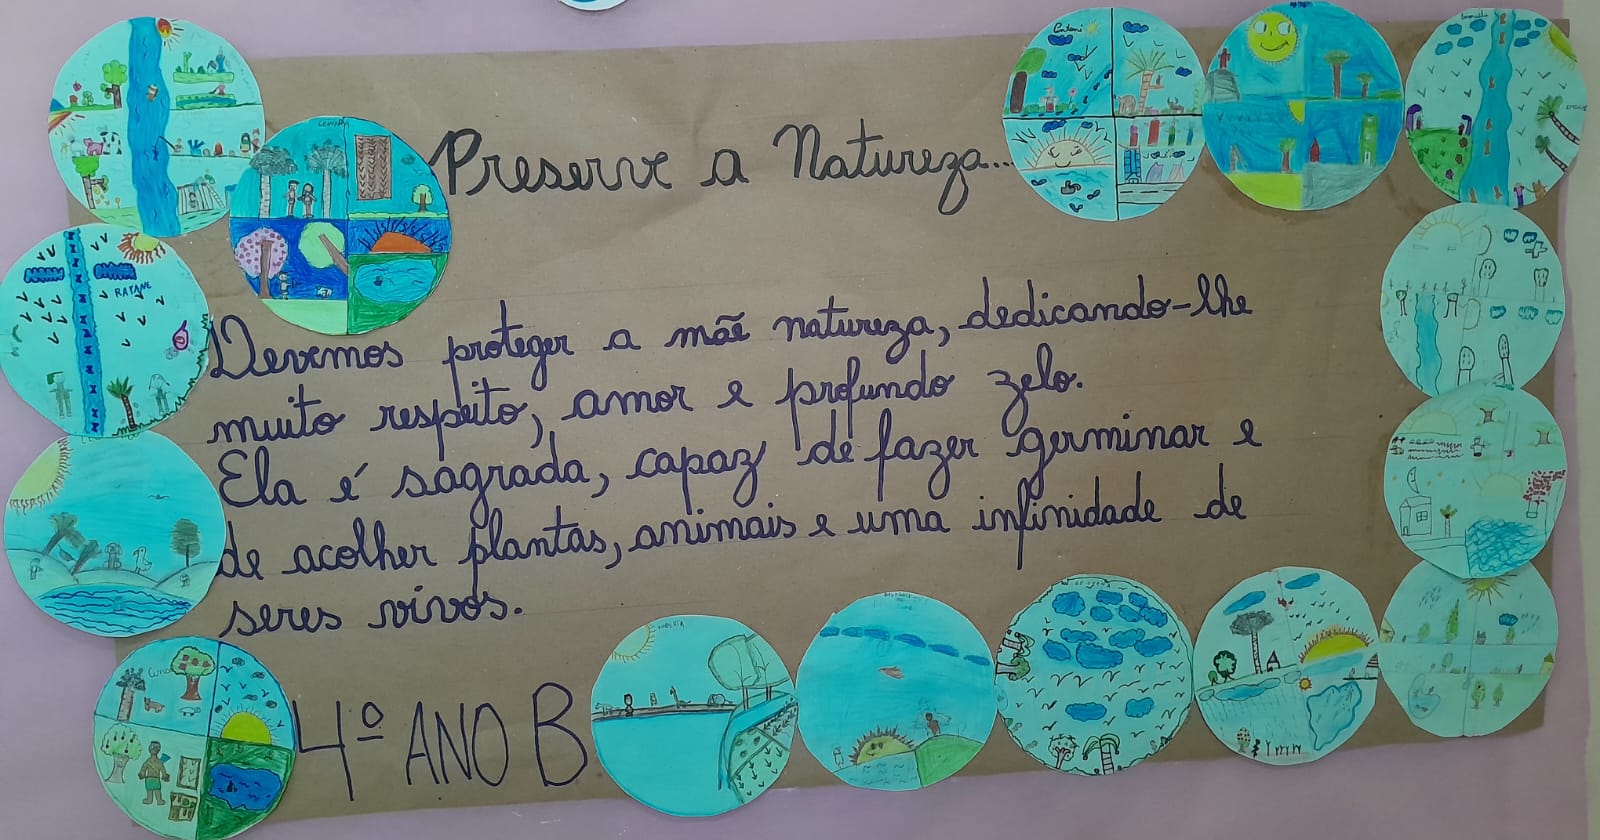 Preserve a Natureza...
Devemos proteger a mãe natureza, dedicando-lhe
muito respeito, amor e profundo zelo.
Ela é sagrada, capaz de fazer germinar e
de acolher plantas, animais e uma infinidade de
seres vivos.
4º ANO B
RAYANE